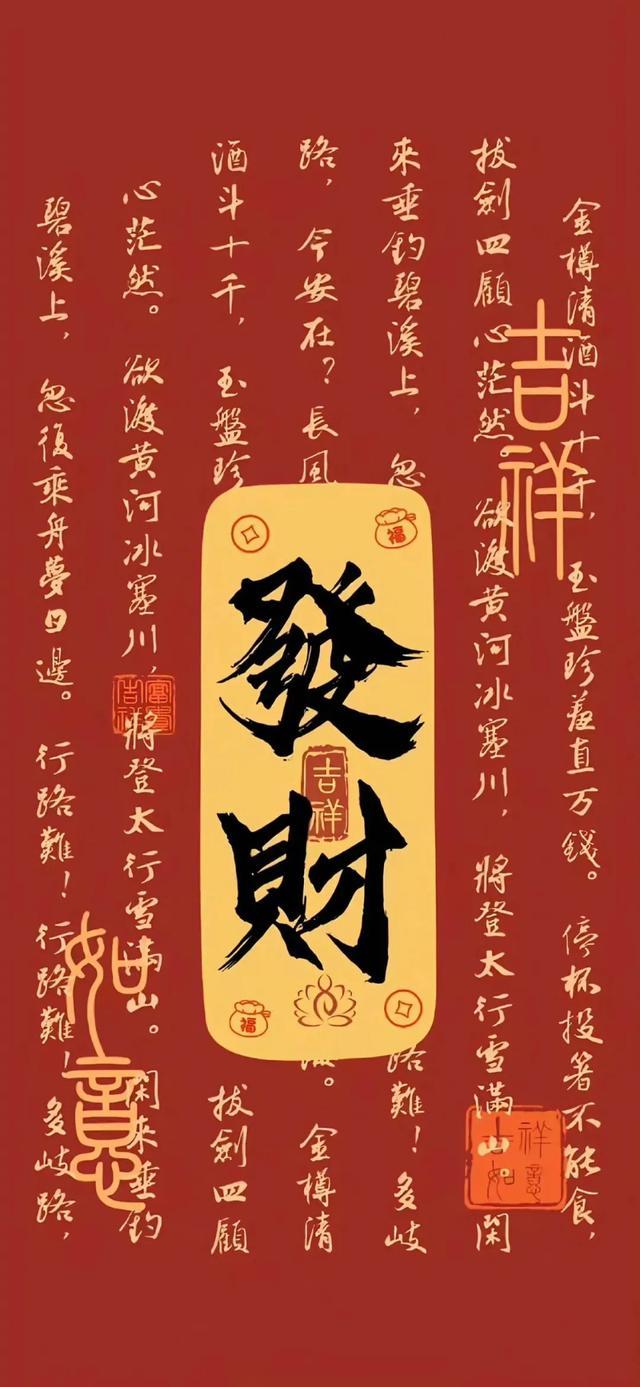 金樽清酒斗十千，玉盤珍羞直万錢。停杯投箸不能食，
拔劍四顧心茫然。欲渡黃河冰塞川，將登太行雪滿山。閑
來垂釣碧溪上，忽
路難！多岐
路，今安在？長風
海。金樽清
酒斗十千，玉盤珍
拔劍四顧
心茫然。欲渡黃河冰塞川，將登太行雪滿山。閑來垂釣
碧溪上，忽復乘舟夢日邊。行路難！行路難！多岐路，
吉祥
發財
吉祥
福
福
如意
富貴
吉祥
祥意
吉如